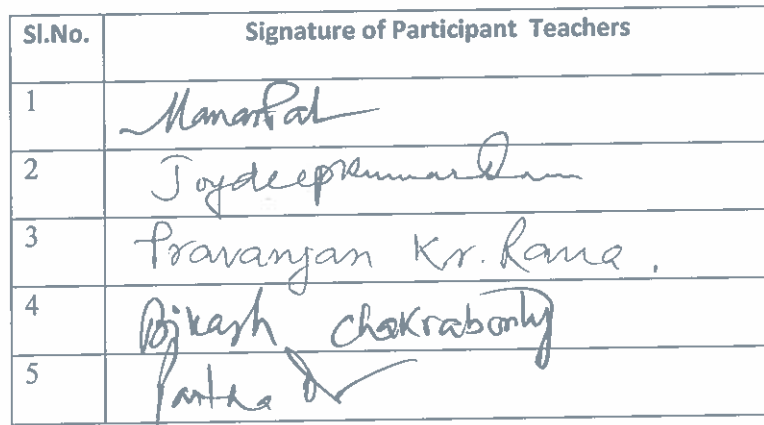 Sl.No. Signature of Participant Teachers
1 Manas Pal
2 Joydeep Kumar
3 Pravanjan Kr. Rana.
4 Bikash Chakraborty
5 Partha